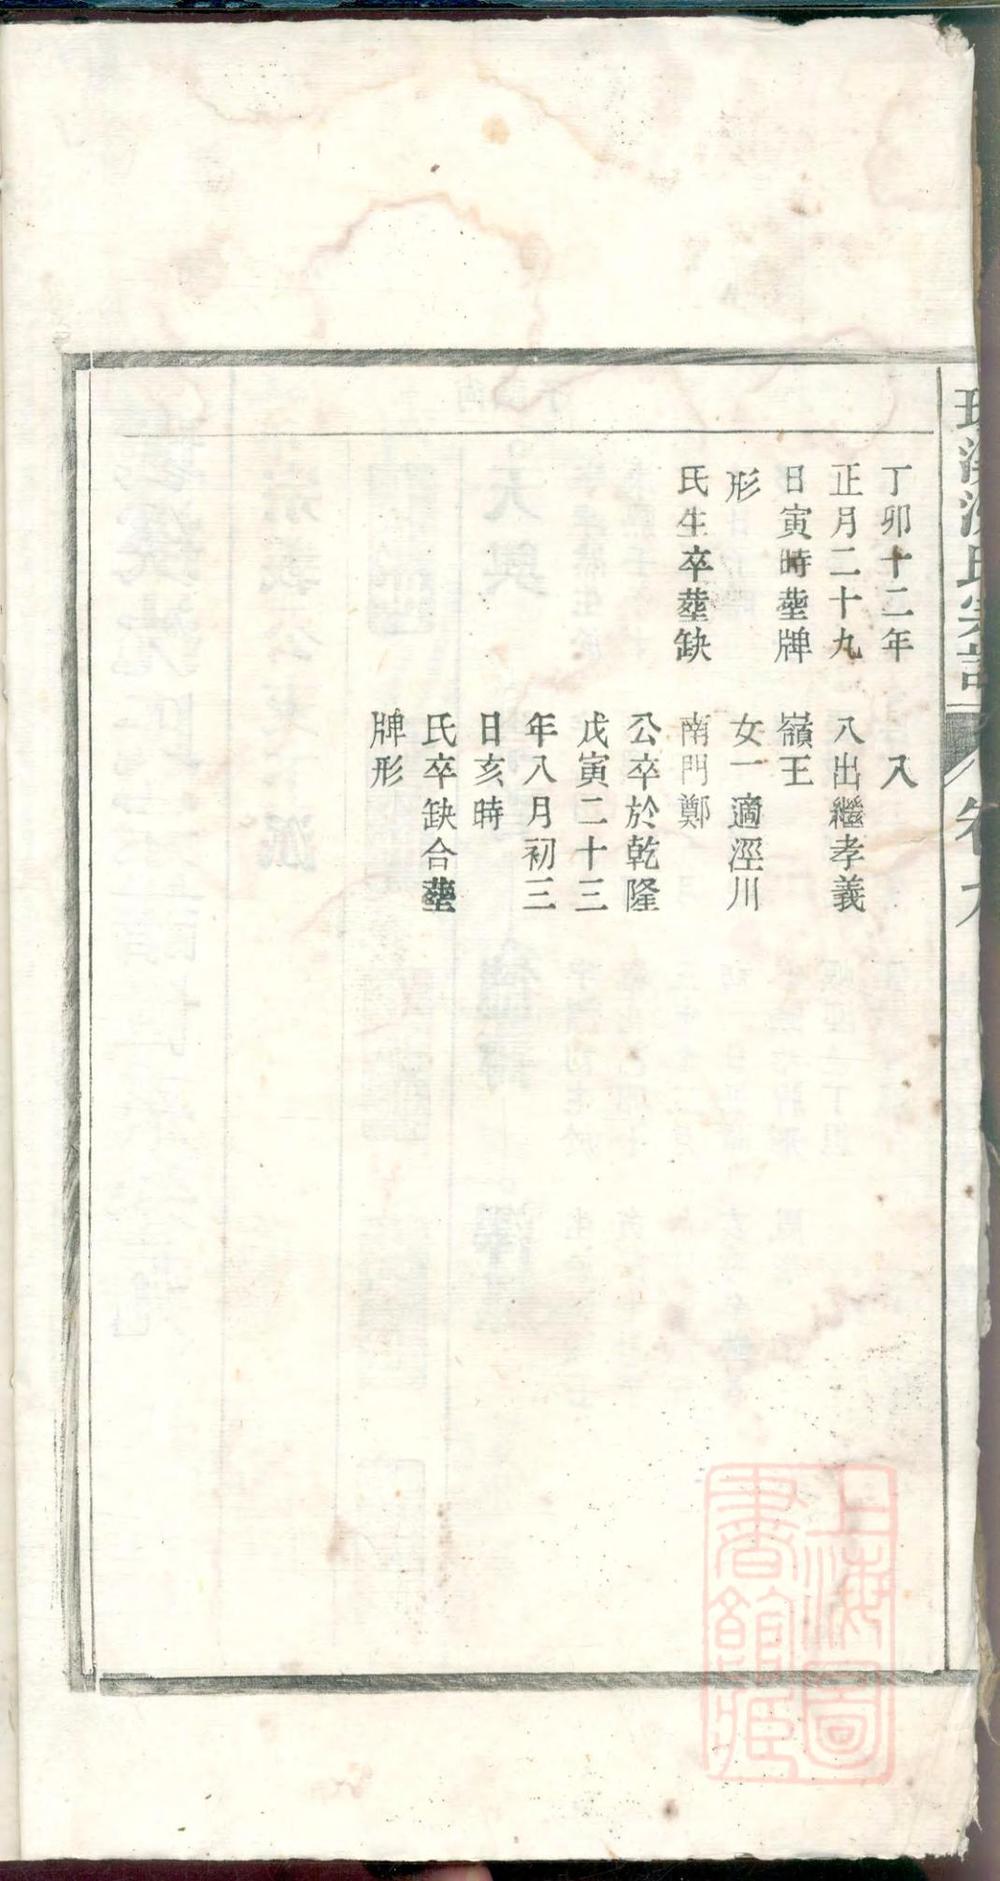 丁卯十二年
正月二十九
日寅時塟牌
形
氏生卒塟缺
入
八出繼孝義
嶺王
女一適涇川
南門鄭
公卒於乾隆
戊寅二十三
年八月初三
日亥時
氏卒缺合塟
牌形
上海圖
書館藏